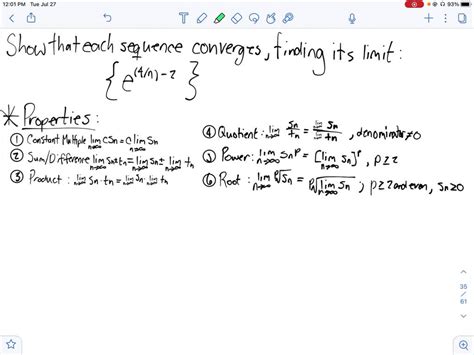 12:01 PM Tue Jul 27
93%
Show that each sequence converges, finding its limit:
{ e^(4/n)-2 }
* Properties:
① Constant Multiple lim n→∞ CSn = C lim n→∞ Sn
② Sum/Difference lim n→∞ Sn ± tn = lim n→∞ Sn ± lim n→∞ tn
③ Product: lim n→∞ Sn · tn = lim n→∞ Sn · lim n→∞ tn
④ Quotient: lim n→∞ Sn/tn = lim n→∞ Sn / lim n→∞ tn, denominator ≠ 0
⑤ Power: lim n→∞ Sn^p = [lim n→∞ Sn]^p, p≥2
⑥ Root: lim n→∞ p√Sn = p√lim n→∞ Sn ; p≥2 and even, Sn≥0
35
/
61